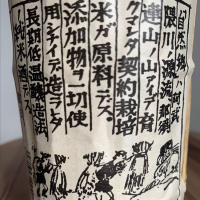 自然郷ハ阿武
隈川ノ源流那須
連山ノ山アイデ育
クマレタ契約栽培
米ガ原料デス。
添加物ヲ一切使
用シナイデ造ラレタ
長期低温醸造法
純米酒デス